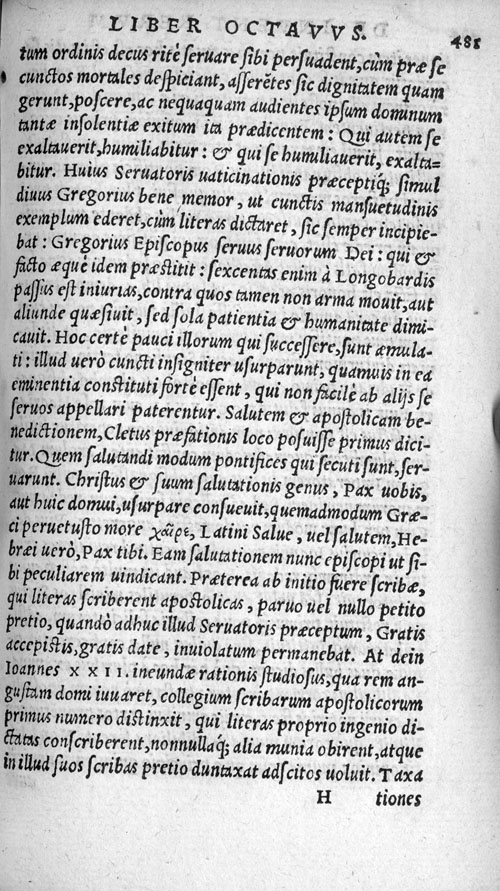 LIBER OCTAVVS. 481
tum ordinis decus ritè ſeruare ſibi perſuadent,cùm præ ſe
cunctos mortales deſpiciant, aſſerẽtes ſic dignitatem quam
gerunt,poſcere,ac nequaquam audientes ipſum dominum
tantæ inſolentiæ exitum ita prædicentem: Qui autem ſe
exaltauerit,humiliabitur: & qui ſe humiliauerit, exalta-
bitur. Huius Seruatoris uaticinationis præceptiq́; ſimul
diuus Gregorius bene memor, ut cunctis manſuetudinis
exemplum ederet,cùm literas dictaret, ſic ſemper incipie-
bat: Gregorius Epiſcopus ſeruus ſeruorum Dei: qui &
facto æquè idem præſtitit: ſexcentas enim à Longobardis
paſſus eſt iniurias,contra quos tamen non arma mouit,aut
aliunde quæſiuit, ſed ſola patientia & humanitate dimi-
cauit. Hoc certè pauci illorum qui ſucceſſere,ſunt æmula-
ti: illud uerò cuncti inſigniter uſurparunt, quamuis in ea
eminentia conſtituti fortè eſſent, qui non facilè ab alijs ſe
ſeruos appellari paterentur. Salutem & apoſtolicam be-
nedictionem,Cletus præfationis loco poſuiſſe primus dici-
tur.Quem ſalutandi modum pontifices qui ſecuti ſunt,ſer-
uarunt. Chriſtus & ſuum ſalutationis genus, Pax uobis,
aut huic domui,uſurpare conſueuit,quemadmodum Græ-
ci peruetuſto more χαῖρε, Latini Salue, uel ſalutem,He-
bræi uerò,Pax tibi. Eam ſalutationem nunc epiſcopi ut ſi-
bi peculiarem uindicant. Præterea ab initio fuere ſcribæ,
qui literas ſcriberent apoſtolicas, paruo uel nullo petito
pretio, quandò adhuc illud Seruatoris præceptum, Gratis
accepiſtis,gratis date, inuiolatum permanebat. At dein
Ioannes XXII. ineundæ rationis ſtudioſus,qua rem an-
guſtam domi iuuaret, collegium ſcribarum apoſtolicorum
primus numero diſtinxit, qui literas proprio ingenio di-
ctatas conſcriberent,nonnullaq́; alia munia obirent,atque
in illud ſuos ſcribas pretio duntaxat adſcitos uoluit. Taxa
H tiones